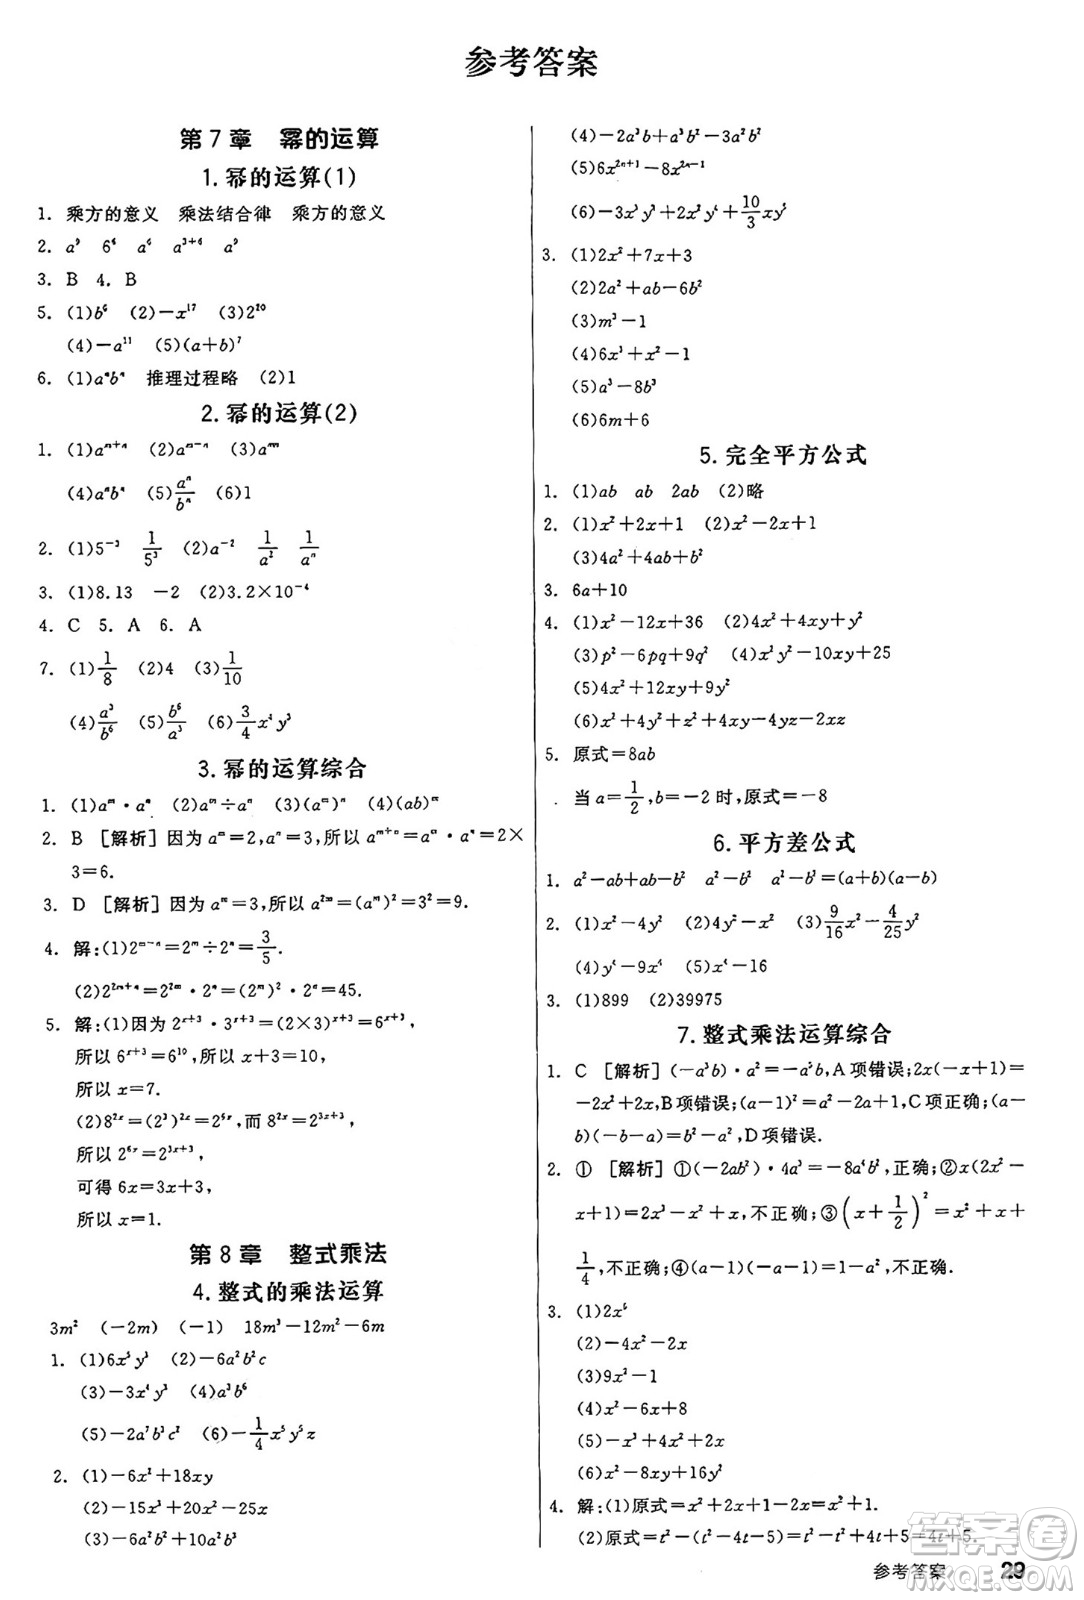 参考答案
第7章 幂的运算
1.幂的运算(1)
1. 乘方的意义 乘法结合律 乘方的意义
2. a⁹ 6⁶ a⁶ a³⁺⁶ a⁹
3. B 4. B
5. (1)b⁶ (2)-x¹⁷ (3)2²⁰
(4)-a¹¹ (5)(a+b)⁷
6. (1)aⁿbⁿ 推理过程略 (2)1
2.幂的运算(2)
1. (1)aᵐ⁺ⁿ (2)aᵐ⁻ⁿ (3)aᵐⁿ
(4)aⁿbⁿ (5)aⁿ/bⁿ (6)1
2. (1)5⁻³ 1/5³ (2)a⁻² 1/a² 1/aⁿ
3. (1)8.13 -2 (2)3.2×10⁻⁴
4. C 5. A 6. A
7. (1)1/8 (2)4 (3)1/10
(4)a³/b⁶ (5)b⁶/a³ (6)3/4x⁴y³
3.幂的运算综合
1. (1)aᵐ·aⁿ (2)aᵐ÷aⁿ (3)(aᵐ)ⁿ (4)(ab)ᵐ
2. B [解析]因为aᵐ=2,aⁿ=3,所以aᵐ⁺ⁿ=aᵐ·aⁿ=2×
3=6.
3. D [解析]因为aᵐ=3,所以a²ᵐ=(aᵐ)²=3²=9.
4. 解:(1)2ᵐ⁻ⁿ=2ᵐ÷2ⁿ=3/5.
(2)2²ᵐ⁺ⁿ=2²ᵐ·2ⁿ=(2ᵐ)²·2ⁿ=45.
5. 解:(1)因为2ˣ⁺³·3ˣ⁺³=(2×3)ˣ⁺³=6ˣ⁺³,
所以6ˣ⁺³=6¹⁰,所以x+3=10,
所以x=7.
(2)8²ˣ=(2³)²ˣ=2⁶ˣ,而8²ˣ=2³ˣ⁺³,
所以2⁶ˣ=2³ˣ⁺³,
可得6x=3x+3,
所以x=1.
第8章 整式乘法
4.整式的乘法运算
3m² (-2m) (-1) 18m³-12m²-6m
1. (1)6x³y³ (2)-6a²b²c
(3)-3x⁴y³ (4)a³b⁶
(5)-2a⁷b³c² (6)-1/4x⁵y⁵z
2. (1)-6x²+18xy
(2)-15x³+20x²-25x
(3)-6a²b²+10a²b³
(4)-2a³b+a³b²-3a²b²
(5)6x²ⁿ⁺¹-8x²ⁿ⁻¹
(6)-3x³y³+2x²y⁴+10/3xy⁵
3. (1)2x²+7x+3
(2)2a²+ab-6b²
(3)m³-1
(4)6x³+x²-1
(5)a³-8b³
(6)6m+6
5.完全平方公式
1. (1)ab ab 2ab (2)略
2. (1)x²+2x+1 (2)x²-2x+1
(3)4a²+4ab+b²
3. 6a+10
4. (1)x²-12x+36 (2)4x²+4xy+y²
(3)p²-6pq+9q² (4)x²y²-10xy+25
(5)4x²+12xy+9y²
(6)x²+4y²+z²+4xy-4yz-2xz
5. 原式=8ab
当a=1/2,b=-2时,原式=-8
6.平方差公式
1. a²-ab+ab-b² a²-b² a²-b²=(a+b)(a-b)
2. (1)x²-4y² (2)4y²-x² (3)9/16x²-4/25y²
(4)y⁴-9x⁴ (5)x⁴-16
3. (1)899 (2)39975
7.整式乘法运算综合
1. C [解析](-a³b)·a²=-a⁵b,A项错误;2x(-x+1)=
-2x²+2x,B项错误;(a-1)²=a²-2a+1,C项正确;(a-
b)(-b-a)=b²-a²,D项错误.
2. ① [解析]①(-2ab²)·4a³=-8a⁴b²,正确;②x(2x²-
x+1)=2x³-x²+x,不正确;③(x+1/2)²=x²+x+
1/4,不正确;④(a-1)(-a-1)=1-a²,不正确.
3. (1)2x⁶
(2)-4x²-2x
(3)9x²-1
(4)x²-6x+8
(5)-x³+4x²+2x
(6)x²-9
4. 解:(1)原式=x²+2x+1-2x=x²+1.
(2)原式=t²-(t²-4t-5)=t²-t²+4t+5=4t+5.
参考答案 29
答案圈
MXQE.COM